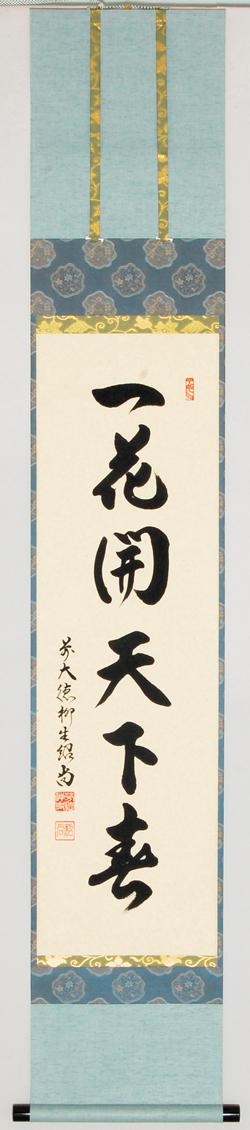 一花開天下春
前大徳柳生紹尚